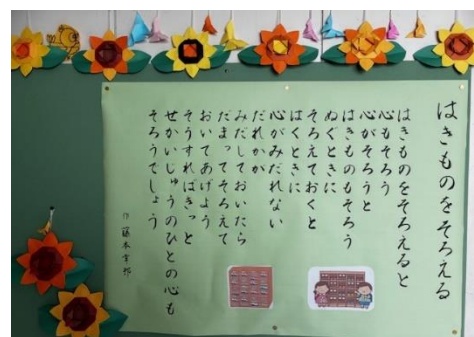 はきものをそろえる
はきものをそろえると
心もそろう
心がそろうと
はきものもそろう
ぬぐときに
そろえておくと
はくときに
心がみだれない
だれかが
みだしておいたら
だまってそろえて
おいてあげよう
そうすればきっと
せかいじゅうのひとの心も
そろうでしょう
作 藤本幸邦